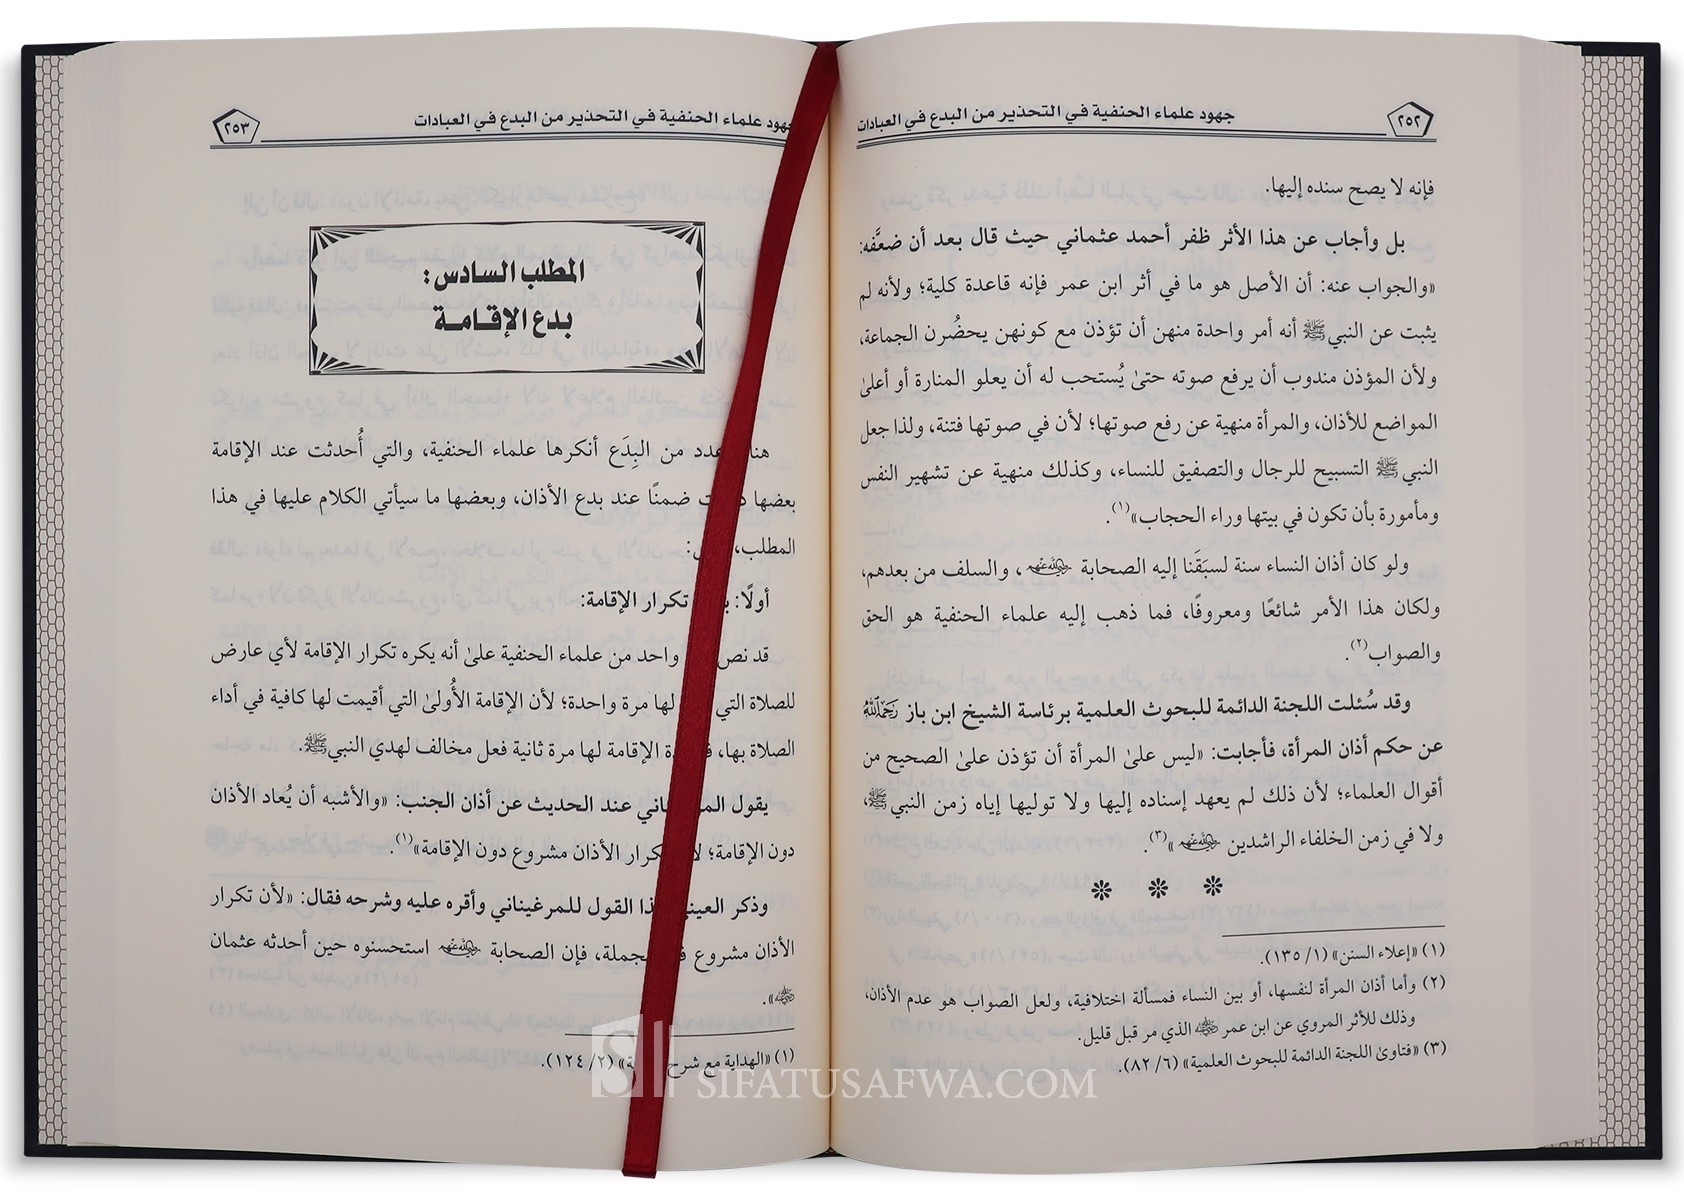 ٢٥٢
جهود علماء الحنفية في التحذير من البدع في العبادات
فإنه لا يصح سنده إليها.
بل وأجاب عن هذا الأثر ظفر أحمد عثماني حيث قال بعد أن ضعَّفه:
«والجواب عنه: أن الأصل هو ما في أثر ابن عمر فإنه قاعدة كلية؛ ولأنه لم
يثبت عن النبي ﷺ أنه أمر واحدة منهن أن تؤذن مع كونهن يحضُرن الجماعة،
ولأن المؤذن مندوب أن يرفع صوته حتىٰ يُستحب له أن يعلو المنارة أو أعلىٰ
المواضع للأذان، والمرأة منهية عن رفع صوتها؛ لأن في صوتها فتنة، ولذا جعل
النبي ﷺ التسبيح للرجال والتصفيق للنساء، وكذلك منهية عن تشهير النفس
ومأمورة بأن تكون في بيتها وراء الحجاب»(١).
ولو كان أذان النساء سنة لسبَقَنا إليه الصحابة رضي الله عنهم، والسلف من بعدهم،
ولكان هذا الأمر شائعًا ومعروفًا، فما ذهب إليه علماء الحنفية هو الحق
والصواب(٢).
وقد سُئلت اللجنة الدائمة للبحوث العلمية برئاسة الشيخ ابن باز رحمه الله
عن حكم أذان المرأة، فأجابت: «ليس علىٰ المرأة أن تؤذن علىٰ الصحيح من
أقوال العلماء؛ لأن ذلك لم يعهد إسناده إليها ولا توليها إياه زمن النبي ﷺ،
ولا في زمن الخلفاء الراشدين رضي الله عنهم»(٣).
(١) «إعلاء السنن» (١/ ١٣٥).
(٢) وأما أذان المرأة لنفسها، أو بين النساء فمسألة اختلافية، ولعل الصواب هو عدم الأذان،
وذلك للأثر المروي عن ابن عمر رضي الله عنه الذي مر قبل قليل.
(٣) «فتاوىٰ اللجنة الدائمة للبحوث العلمية» (٦/ ٨٢).
جهود علماء الحنفية في التحذير من البدع في العبادات
٢٥٣
المطلب السادس:
بدع الإقامة
عدد من البِدَع أنكرها علماء الحنفية، والتي أُحدثت عند الإقامة
بعضها ضمنًا عند بدع الأذان، وبعضها ما سيأتي الكلام عليها في هذا
المطلب،
أولًا: تكرار الإقامة:
قد نص واحد من علماء الحنفية علىٰ أنه يكره تكرار الإقامة لأي عارض
للصلاة التي لها مرة واحدة؛ لأن الإقامة الأُولىٰ التي أقيمت لها كافية في أداء
الصلاة بها، الإقامة لها مرة ثانية فعل مخالف لهدي النبي ﷺ.
يقول عند الحديث عن أذان الجنب: «والأشبه أن يُعاد الأذان
دون الإقامة؛ تكرار الأذان مشروع دون الإقامة»(١).
وذكر العيني القول للمرغيناني وأقره عليه وشرحه فقال: «لأن تكرار
الأذان مشروع الجملة، فإن الصحابة رضي الله عنهم استحسنوه حين أحدثه عثمان
رضي الله عنه».
(١) «الهداية مع شرح (٢/ ١٢٤).
SIFATUSAFWA.COM